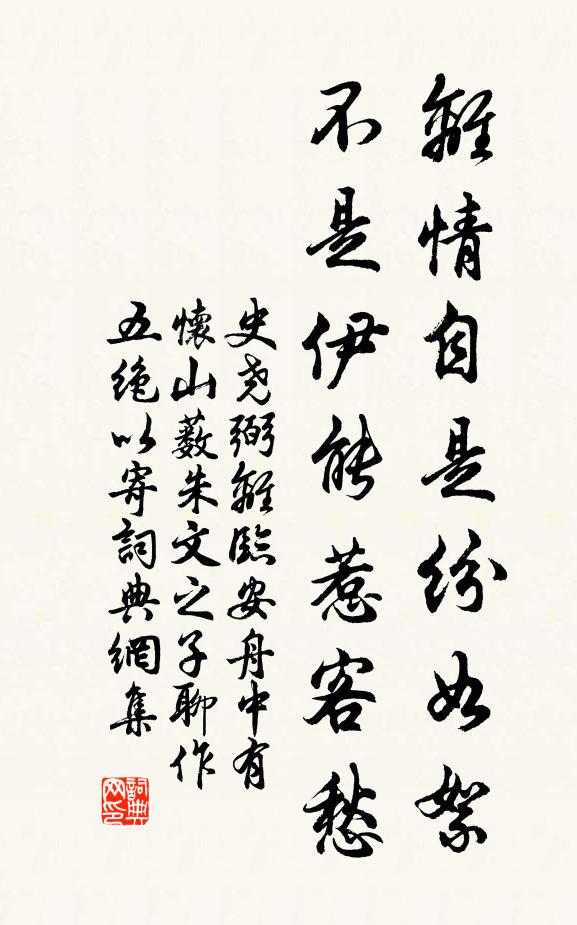 離情自是紛如絮
不是伊能惹客愁
史堯弼離臨安舟中有
懷山藪朱文之子聊作
五絕以寄詞典網集
詞典網印